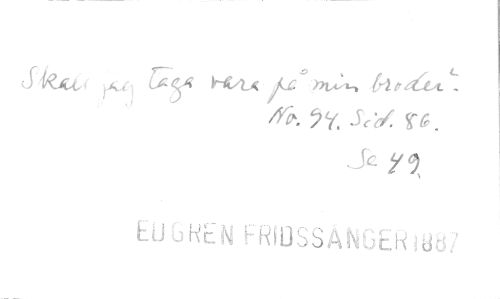 Skall jag taga vara på min broder?
No. 94. Sid. 86.
Se 49.
EUGREN FRIDSSÅNGER 1887